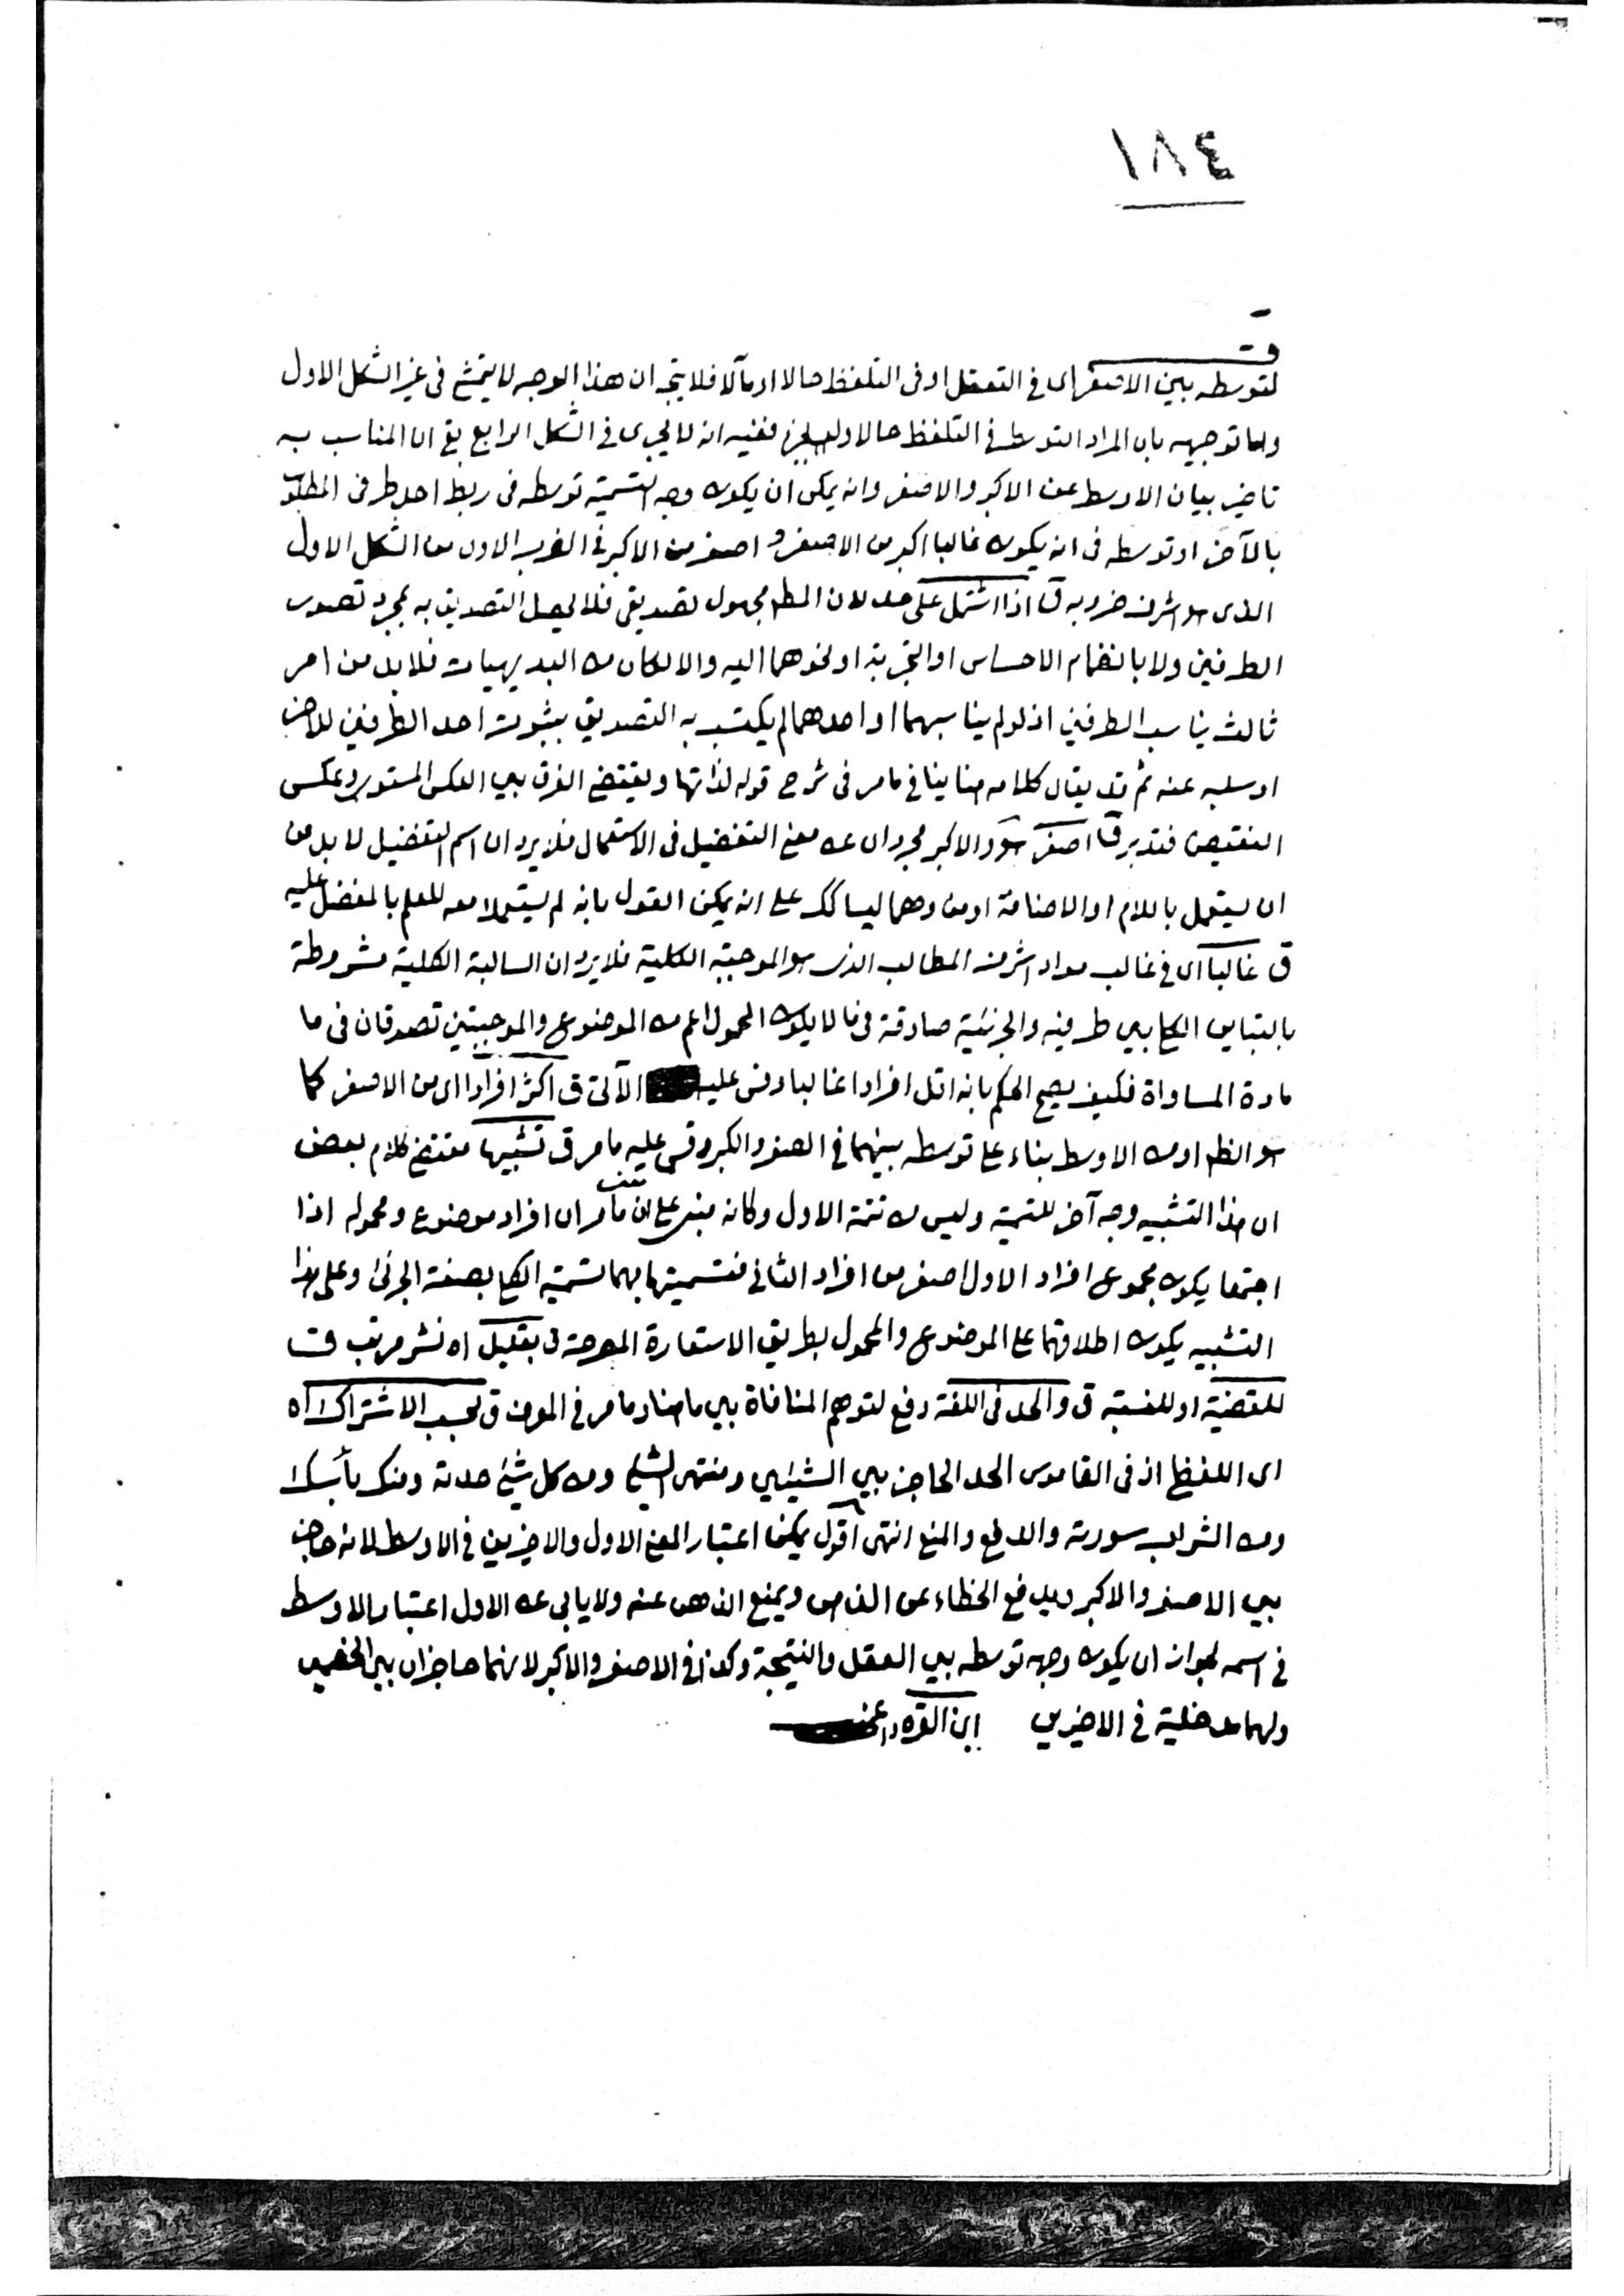 ١٨٤
ق
لتوسطه بين الاصغر اى فى التعقل او فى التلفظ حالا او مآلا فلا يتجه ان هذا الوجه لا يتمشى فى غير الشكل الاول
واما توجيهه بان المراد التوسط فى التلفظ حالا ففيه انه لا يجرى فى الشكل الرابع بقى ان المناسب به
تاخير بيان الاوسط عن الاكبر والاصغر وانه يمكن ان يكون وجه التسمية توسطه فى ربط احد طرفى المطلوب
بالآخر او توسطه فى انه يكون غالبا اكبر من الاصغر و اصغر من الاكبر فى الضرب الاول من الشكل الاول
الذى هو اشرف ضروبه ق اذا اشتمل على حد لان المط مجهول تصديقى فلا يحصل التصديق به بمجرد تصور
الطرفين ولا بانضمام الاحساس او التجربة او نحوهما اليه والا لكان من البديهيات فلا بد من امر
ثالث يناسب الطرفين اذ لو لم يناسبهما او احدهما لم يكتسب به التصديق بثبوت احد الطرفين للاخر
او سلبه عنه ثم قد يقال كلامه هنا ينافى ما مر فى شرح قوله لذاتها ويقتضى الفرق بين العكس المستوى وعكس
النقيض فتدبر ق اصغر هو والاكبر مجردان عن معنى التفضيل فى الاستعمال فلا يرد ان اسم التفضيل لا بد من
ان يستعمل باللام او الاضافة او من وهما ليسا كك على انه يمكن القول بانه لم يستعملا معه للعلم بالمفضل عليه
ق غالبا اى فى غالب مواد اشرف المطالب الذى هو الموجبة الكلية فلا يرد ان السالبة الكلية مشروطة
بالتباين الكلى بين طرفيه والجزئية صادقة فيما لا يكون المحمول اعم من الموضوع والموجبتين تصدقان فى ما
مادة المساواة فكيف يصح الحكم بانه اقل افرادا غالبا وقس عليه الآتى ق اكثر افرادا اى من الاصغر كما
هو الظ او من الاوسط بناء على توسطه بينهما فى الصغر والكبر وقس عليه ما مر ق تشبيها مقتضى كلام بعض
ان هذا التشبيه وجه آخر للتسمية وليس من تتمة الاول وكانه مبنى على ان ما مر ان افراد موضوع ومحموله اذا
اجتمعا يكون مجموع افراد الاول اصغر من افراد الثانى فتسميتها بهما تسمية الكلى بصفة الجزئى وعلى هذا
التشبيه يكون اطلاقهما على الموضوع والمحمول بطريق الاستعارة المصرحة ق بقليل اه نشر مرتب ق
للقضية او للنسبة ق والحد فى اللغة دفع لتوهم المنافاة بين ما هنا وما مر فى المعرف ق بحسب الاشتراك اه
اى اللفظى اذ فى القاموس الحد الحاجز بين الشيئين ومنتهى الشئ ومن كل شئ حدته ومنك بأسك
ومن الشراب سورته والدفع والمنع انتهى اقول يمكن اعتبار المعنى الاول والاخيرين فى الاوسط لانه حاجز
بين الاصغر والاكبر ويدفع الخطاء عن الذهن ويمنع الذهن عنه ولا يابى عن الاول اعتبار الاوسط
فى اسمه لجواز ان يكون وجهه توسطه بين العقل والنتيجة وكذا فى الاصغر والاكبر لانهما حاجزان بين الخصمين
ولهما مدخلية فى الاخيرين ابن القره داغى